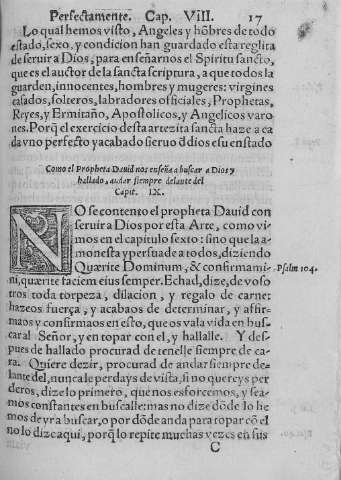 Perfectamente. Cap. VIII. 17
Lo qual hemos visto, Angeles y hõbres de todo
estado, sexo, y condicion han guardado esta reglita
de seruir a Dios, para enseñarnos el Spiritu sancto,
que es el auctor de la sancta scriptura, a que todos la
guarden, innocentes, hombres y mugeres: virgines
casados, solteros, labradores officiales, Prophetas,
Reyes, y Ermitaño, Apostolicos, y Angelicos varo
nes. Porq̃ el exercicio desta artezita sancta haze a ca
da vno perfecto y acabado sieruo d̃ dios en su estado
Como el Propheta Dauid nos enseña a buscar a Dios y
hallado, andar siempre delante del
Capit. IX.
NO se contento el propheta Dauid con
seruir a Dios por esta Arte, como vi-
mos en el capitulo sexto: sino que la a-
monesta y persuade a todos, diziendo
Quærite Dominum, & confirmami-
ni, quærite faciem eius semper. Echad, dize, de voso
tros toda torpeza, dilacion, y regalo de carne:
hazeos fuerça, y acabaos de determinar, y affir-
maos y confirmaos en esto, que os va la vida en bus-
car al Señor, y en topar con el, y hallalle. Y des-
pues de hallado procurad de tenelle siempre de ca-
ra. Quiere dezir, procurad de andar siempre de-
lante del, nunca le perdays de vista, si no quereys per
deros, dize lo primero, que nos esforcemos, y sea-
mos constantes en buscalle: mas no dize dõde lo he
mos de yr a buscar, o por dõde anda para topar cõ el
no lo dize aqui, porq̃ lo repite muchas vezes en sus
Psalm 104.
C